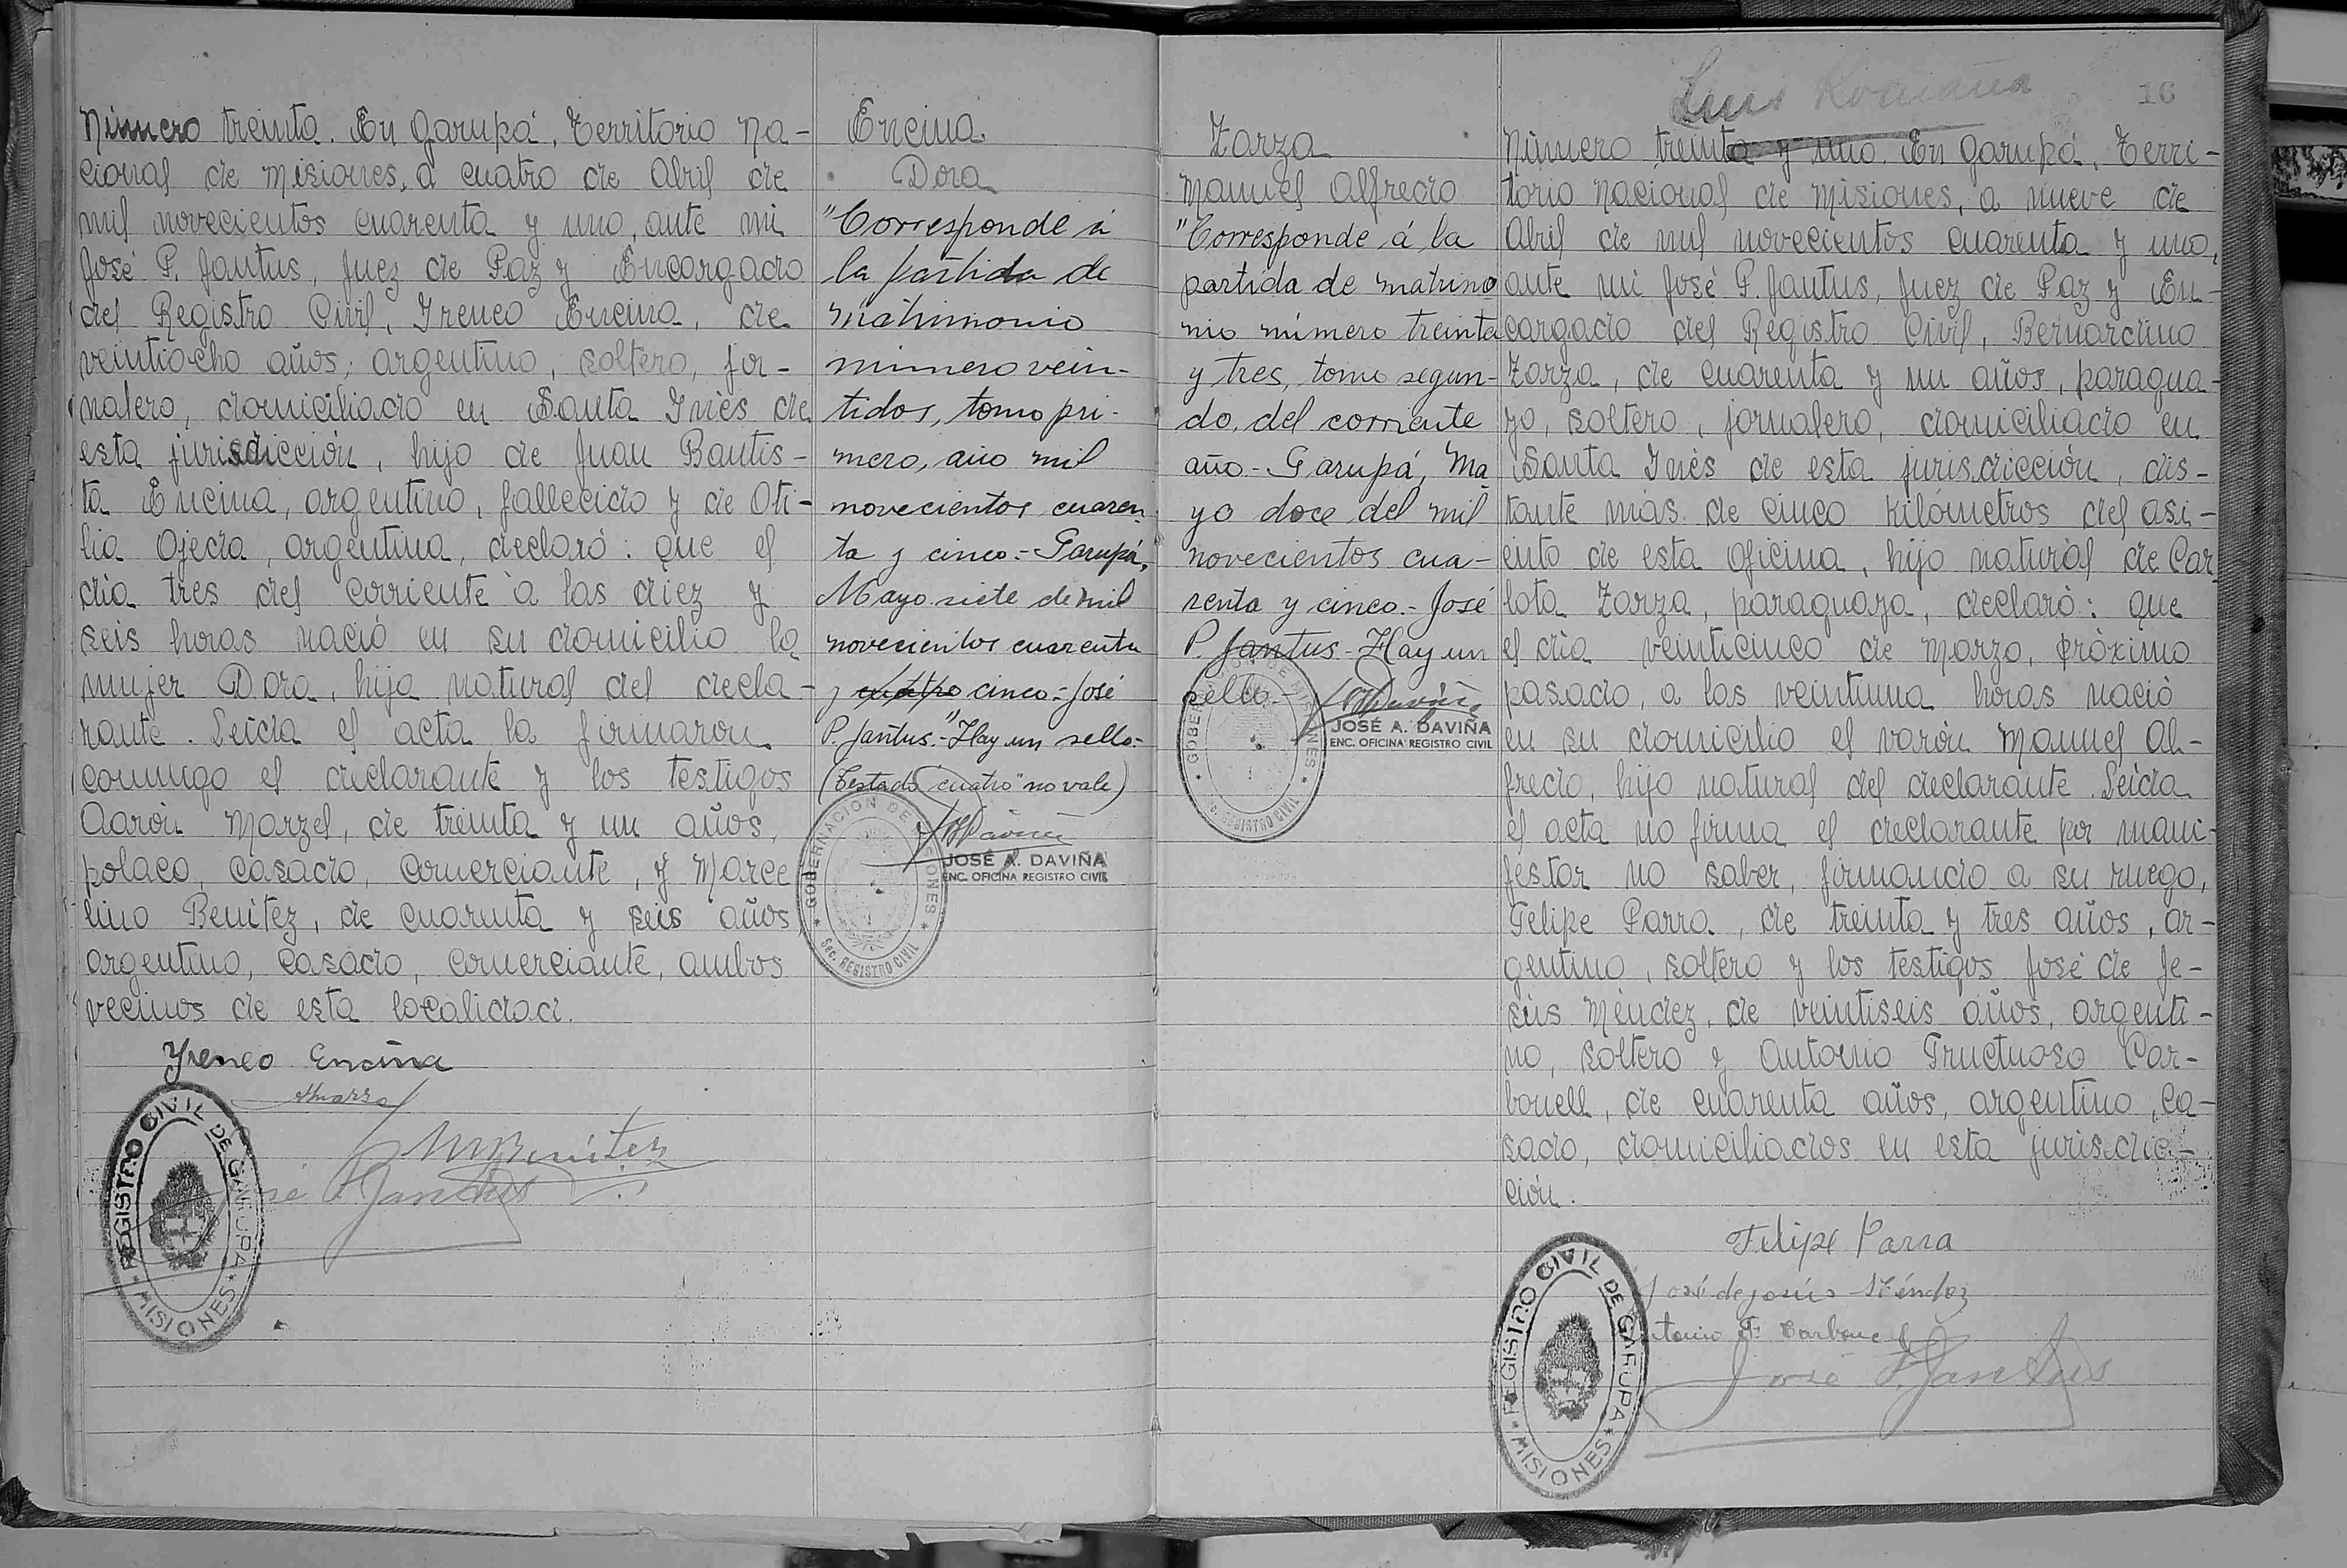 Número treinta. En Garupá, Territorio Na-
cional de Misiones, a cuatro de Abril de
mil novecientos cuarenta y uno, ante mi
José P. Jantus, Juez de Paz y Encargado
del Registro Civil, Ireneo Encina, de
veintiocho años, argentino, soltero, jor-
nalero, domiciliado en Santa Inés de
esta jurisdicción, hijo de Juan Bautis-
ta Encina, argentino, fallecido y de Oti-
lia Ojeda, argentina, declaró: que el
día tres del corriente a las diez y
seis horas nació en su domicilio la
mujer Dora, hija natural del decla-
rante. Leída el acta la firmaron
conmigo el declarante y los testigos
Aarón Marzel, de treinta y un años,
polaco, casado, comerciante, y Marce
lino Benítez, de cuarenta y seis años,
argentino, casado, comerciante, ambos
vecinos de esta localidad.
Yreneo Encina
AMarzel
M Benitez
José P. Jantus
REGISTRO CIVIL DE GARUPA
* MISIONES *
Encina
Dora
"Corresponde á
la partida de
matrimonio
número vein-
tidos, tomo pri-
mero, año mil
novecientos cuaren
ta y cinco.- Garupá,
Mayo siete de mil
novecientos cuarenta
y cuatro cinco.- José
P. Jantus."- Hay un sello.-
(Testado "cuatro" no vale)
GOBERNACION DE MISIONES
Sec. REGISTRO CIVIL
JOSÉ A. DAVIÑA
ENC. OFICINA REGISTRO CIVIL
Zarza
Manuel Alfredo
"Corresponde á la
partida de matrimo
nio número treinta
y tres, tomo segun-
do, del corriente
año.- Garupá, Ma
yo doce del mil
novecientos cua-
renta y cinco.- José
P. Jantus.- Hay un
sello.-
GOBERNACION DE MISIONES
Sec. REGISTRO CIVIL
JOSÉ A. DAVIÑA
ENC. OFICINA REGISTRO CIVIL
Luis
16
Número treinta y uno. En Garupá, Terri-
torio Nacional de Misiones, a nueve de
Abril de mil novecientos cuarenta y uno,
ante mi José P. Jantus, Juez de Paz y En-
cargado del Registro Civil, Bernardino
Zarza, de cuarenta y un años, paragua-
yo, soltero, jornalero, domiciliado en
Santa Inés de esta jurisdicción, dis-
tante más de cinco kilómetros del asi-
ento de esta oficina, hijo natural de Car
lota Zarza, paraguaya, declaró: que
el día veinticinco de Marzo, próximo
pasado, a las veintiuna horas nació
en su domicilio el varón Manuel Al-
fredo, hijo natural del declarante. Leída
el acta no firma el declarante por mani-
festar no saber, firmando a su ruego,
Felipe Parra, de treinta y tres años, ar-
gentino, soltero y los testigos José de Je-
sús Méndez, de veintiseis años, argenti-
no, soltero y Antonio Fructuoso Car-
bonell, de cuarenta años, argentino, ca-
sado, domiciliados en esta jurisdic-
ción.
Felipe Parra
José de Jesús Méndez
Antonio F. Carbonell
José P. Jantus
REGISTRO CIVIL DE GARUPA
* MISIONES *